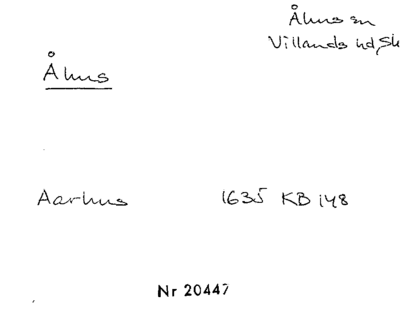 Åhus sn
Villands hd, Sk
Åhus
Aarhus 1635 KB 148
Nr 20447